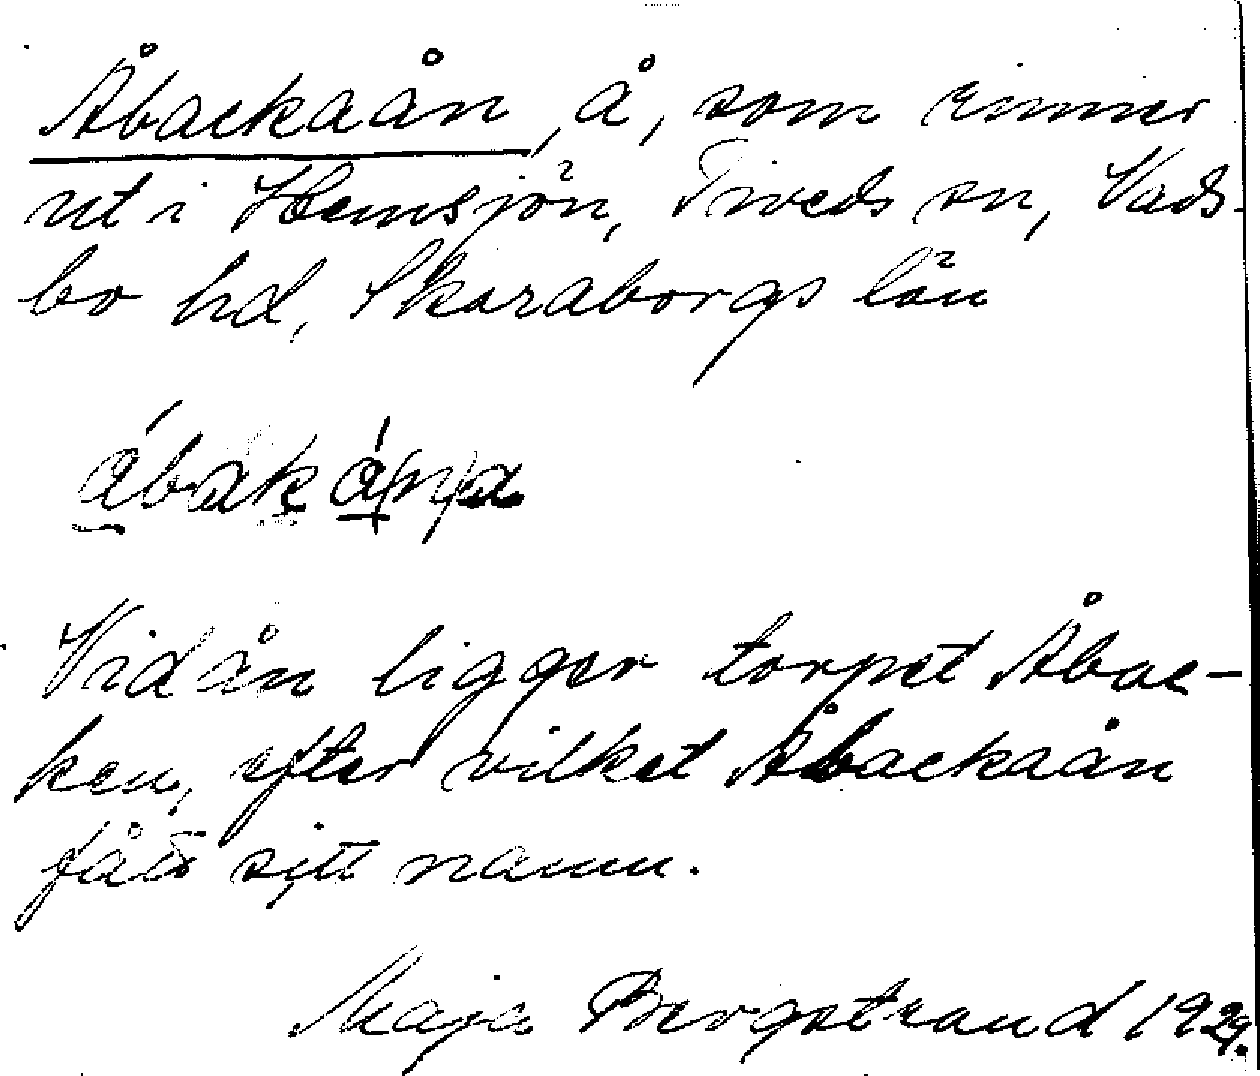 Åbackaån, å, som rinner
ut i Hemsjön, Tiveds sn, Vads-
bo hd, Skaraborgs län
Vid ån ligger torpet Åbac-
ken, efter vilket Åbackaån
fått sitt namn.
Maja Bergstrand 1929.